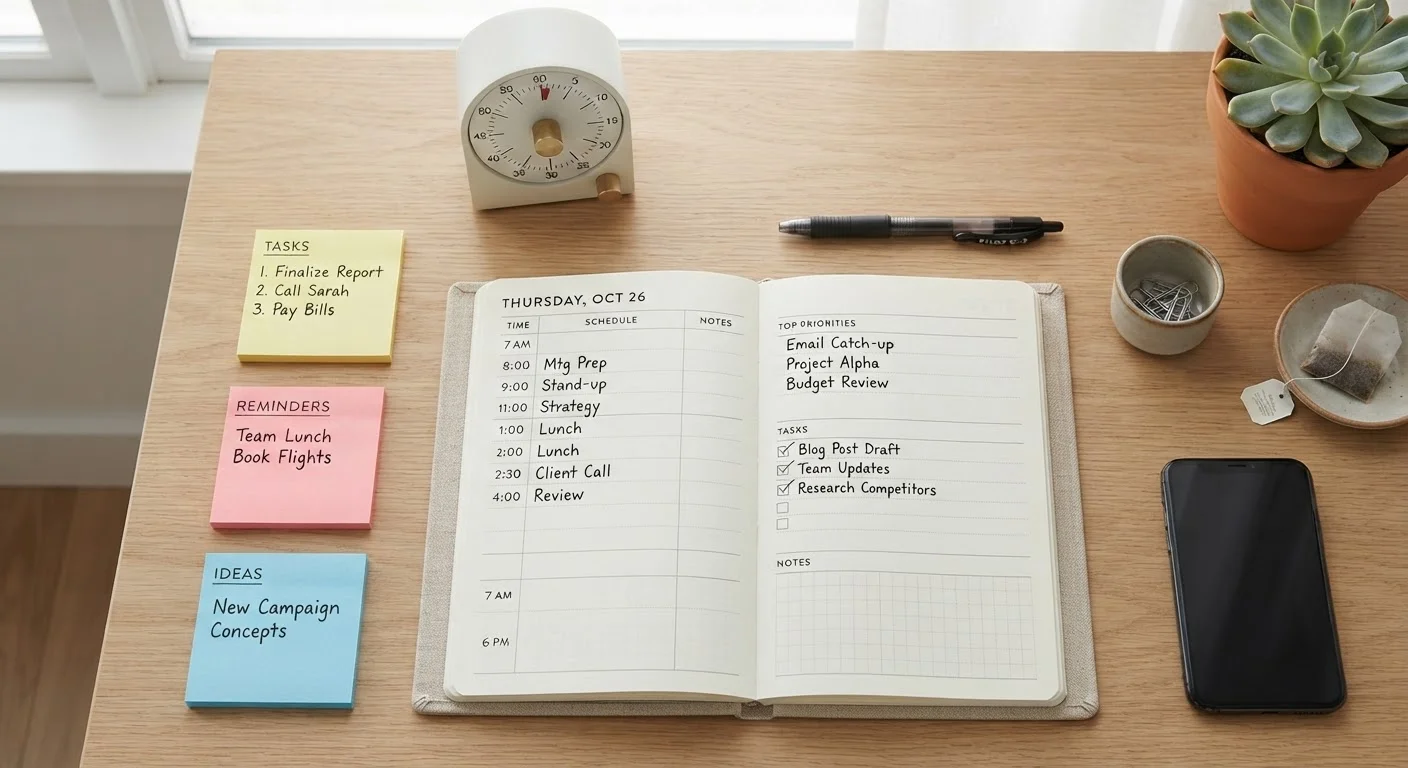 60
5
10
15
30
40
30
TASKS
1. Finalize Report
2. Call Sarah
3. Pay Bills
REMINDERS
Team Lunch
Book Flights
IDEAS
New Campaign
Concepts
THURSDAY, OCT 26
TIME SCHEDULE NOTES
7 AM
8:00 Mtg Prep
9:00 Stand-up
11:00 Strategy
1:00 Lunch
2:00 Lunch
2:30 Client Call
4:00 Review
7 AM
6 PM
TOP
Email Catch-up
Project Alpha
Budget Review
TASKS
Blog Post Draft
Team Updates
Research Competitors
NOTES